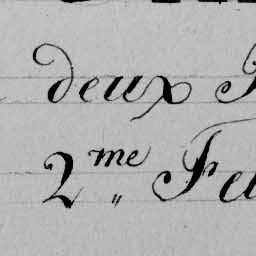 deux
2.me Fe